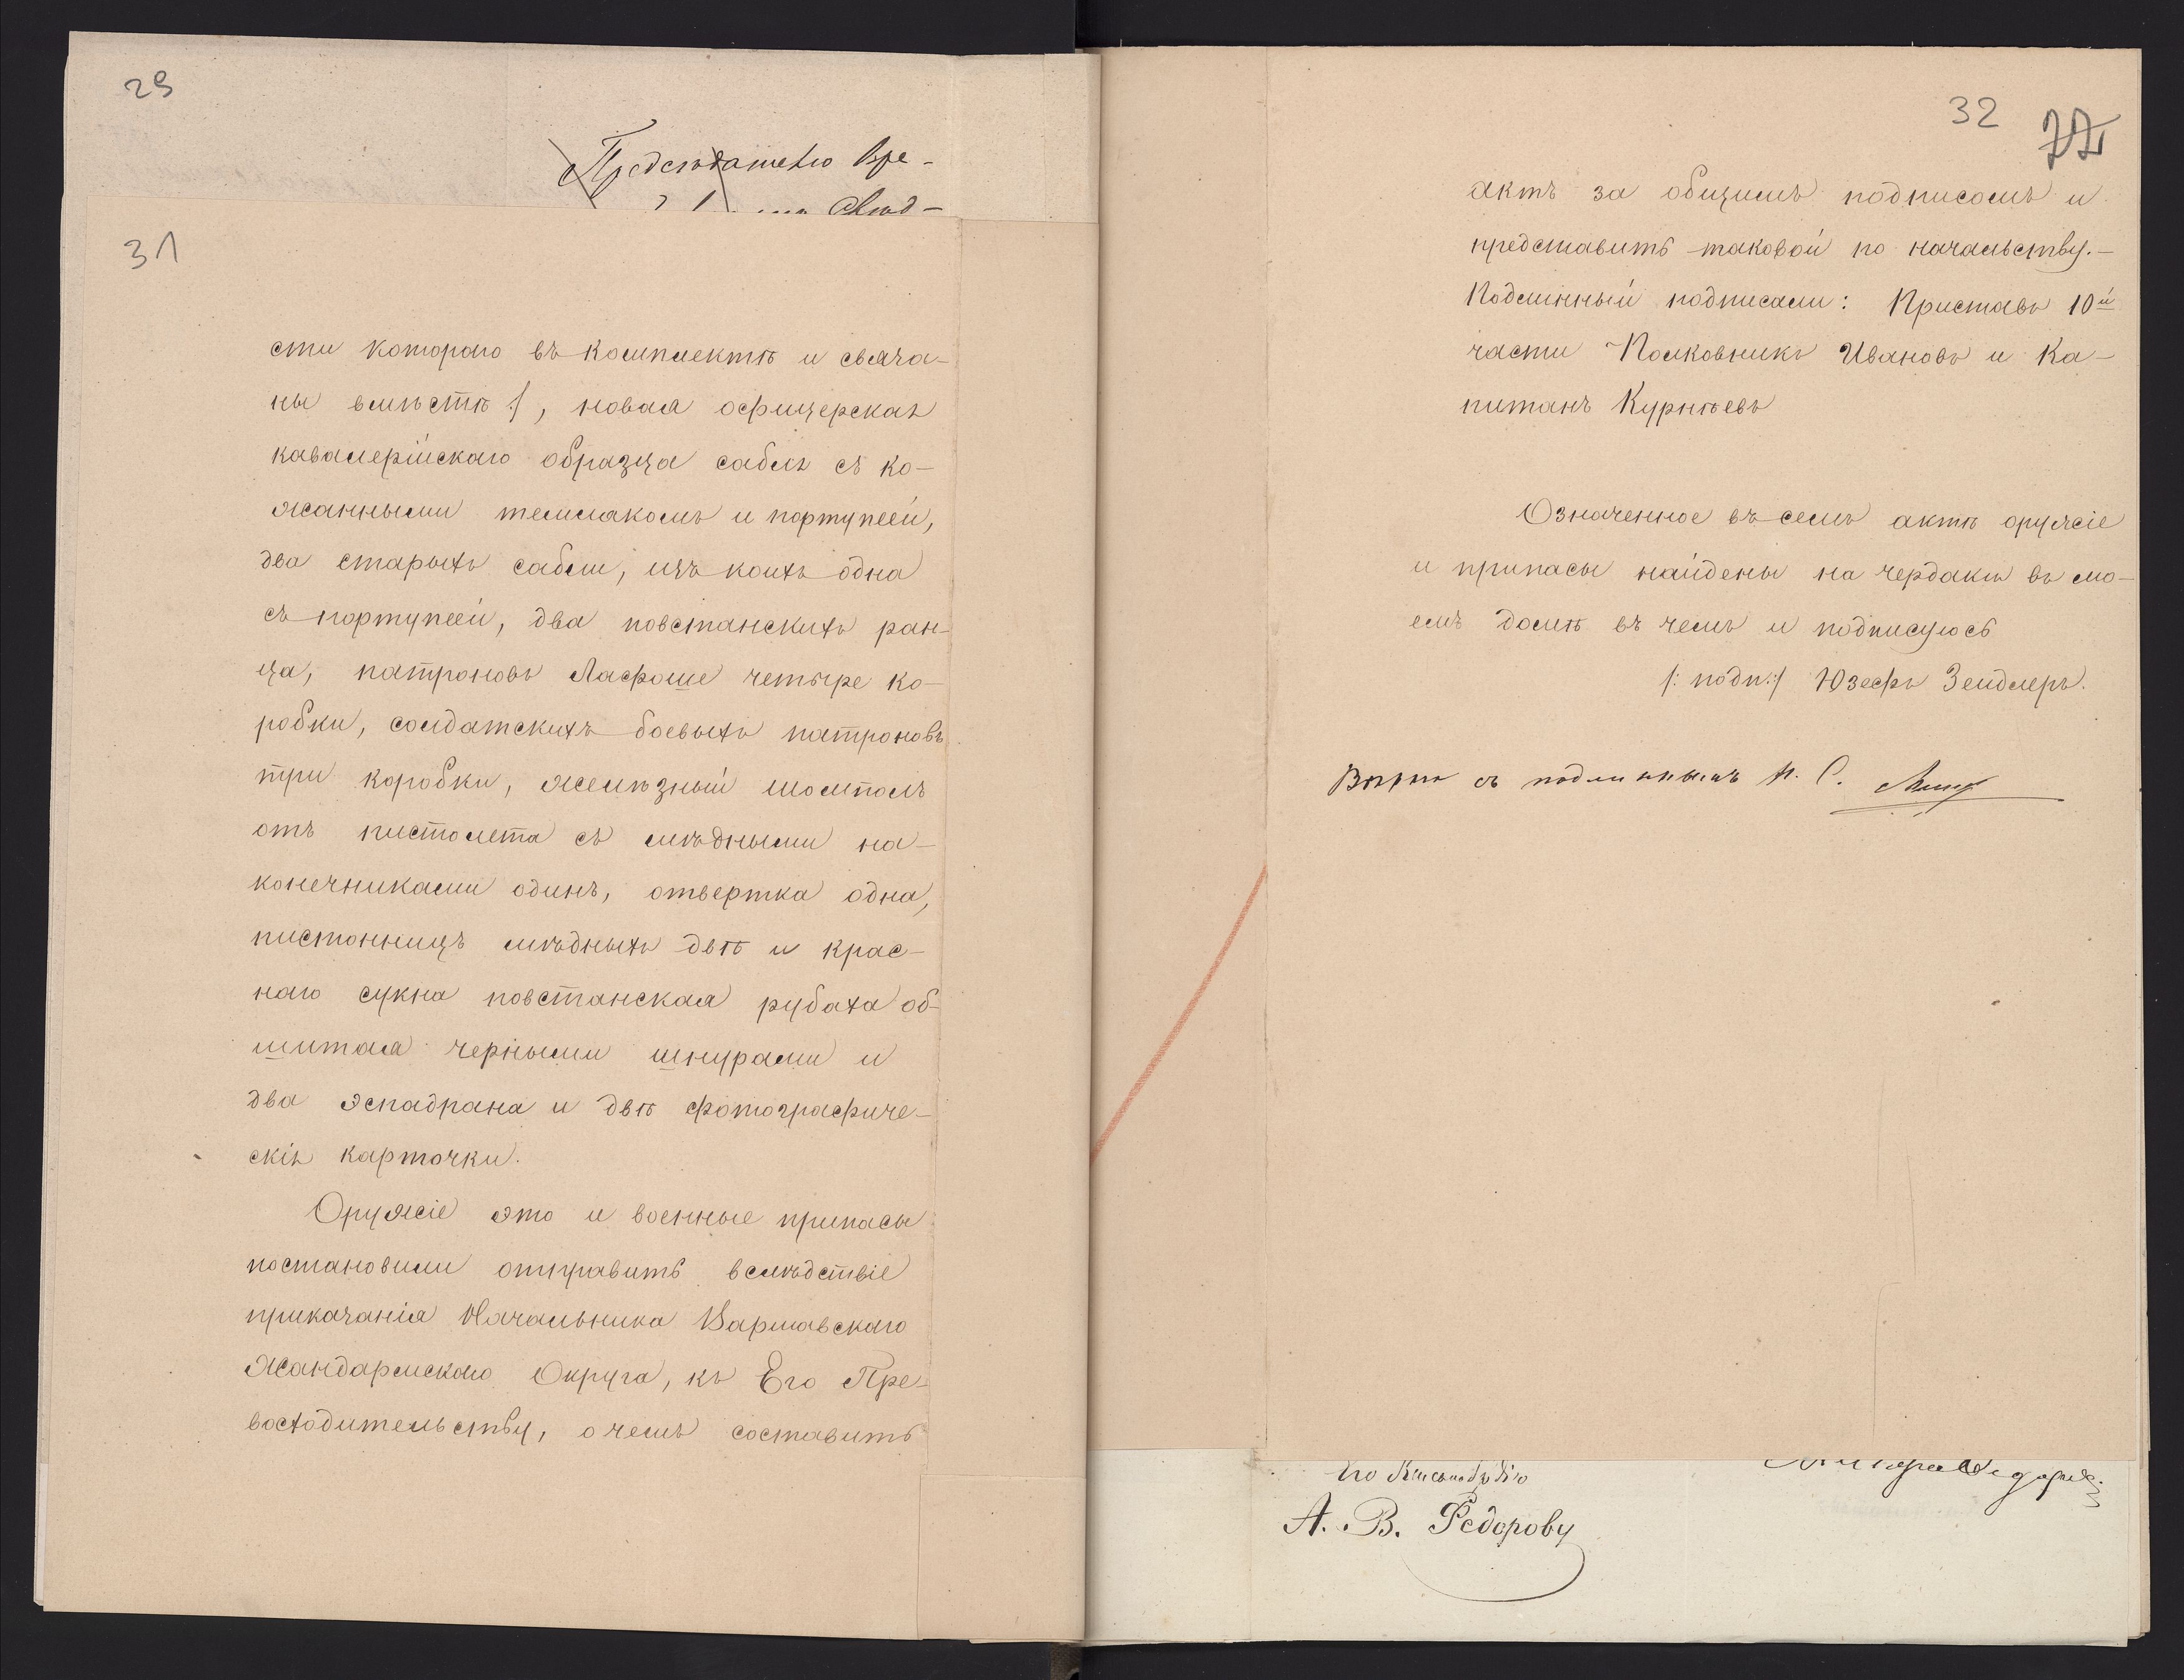 29
Предсѣдателю Вре-
Слѣд-
31
сти котораго въ комплектѣ и связа-
ны вмѣстѣ :/, новая офицерская
кавалерійскаго образца сабля съ ко-
жанными темлякомъ и портупеей,
два старыхъ сабли, изъ коихъ одна
съ портупеей, два повстанскихъ ран-
ца, патроновъ Лафоше четыре ко-
робки, солдатскихъ боевыхъ патроновъ
три коробки, желѣзный шомполъ
отъ пистолета съ мѣдными на-
конечниками одинъ, отвертка одна,
пистонницъ мѣдныхъ двѣ и крас-
наго сукна повстанская рубаха об-
шитая черными шнурами и
два эспадрана и двѣ фотографиче-
скія карточки.
Оружіе это и военные припасы
постановили отправить вслѣдствіе
приказанія Начальника Варшавскаго
Жандармскаго Округа, къ Его Пре-
восходительству, о чемъ составить
32
актъ за общимъ подписомъ и
представить таковой по начальству.-
Подлинный подписали: Приставъ 10й
части Полковникъ Ивановъ и Ка-
питанъ Курнѣевъ
Означенное въ семъ актѣ оружіе
и припасы найдены на чердакѣ въ мо-
емъ домѣ въ чемъ и подписуюсь
/: подп:/ Юзефъ Зейдлеръ.
Вѣрно съ подлиннымъ
А. В. Федорову